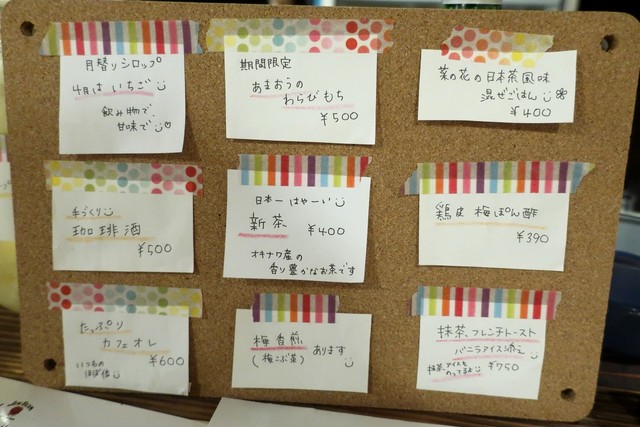 月替りシロップ
4月は いちご
飲み物で
甘味で
期間限定
あまおうの
わらびもち
¥500
菜の花の日本茶風味
混ぜごはん
¥400
手づくり
珈琲酒
¥500
日本一 はやーい
新茶 ¥400
オキナワ産の
香り豊かなお茶です
鶏皮 梅ぽん酢
¥390
たっぷり
カフェオレ
¥600
いつもの
ほぼ倍
梅香煎 あります
(梅こぶ茶)
抹茶フレンチトースト
バニラアイス添え
抹茶アイスも
のってるよ ¥750